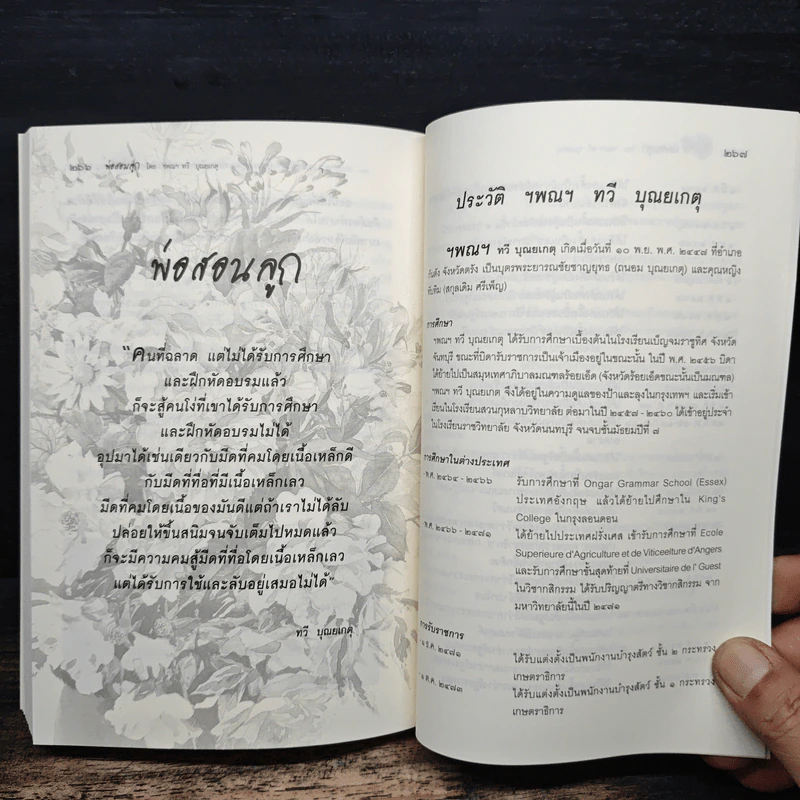 พ่อสอนลูก
"คนที่ฉลาด แต่ไม่ได้รับการศึกษา
และฝึกหัดอบรมแล้ว
ก็จะสู้คนโง่ที่เขาได้รับการศึกษา
และฝึกหัดอบรมไม่ได้
อุปมาได้เช่นเดียวกับมีดที่คมโดยเนื้อเหล็กดี
กับมีดที่ทื่อที่มีเนื้อเหล็กเลว
มีดที่คมโดยเนื้อของมันดีแต่ถ้าเราไม่ได้ลับ
ปล่อยให้ขึ้นสนิมจนจับเต็มไปหมดแล้ว
ก็จะมีความคมสู้มีดที่ทื่อโดยเนื้อเหล็กเลว
แต่ได้รับการใช้และลับอยู่เสมอไม่ได้"
ทวี บุณยเกตุ
๒๖๗
ประวัติ ฯพณฯ ทวี บุณยเกตุ
ฯพณฯ ทวี บุณยเกตุ เกิดเมื่อวันที่ ๑๐ พ.ย. พ.ศ. ๒๔๔๗ ที่อำเภอ
กันตัง จังหวัดตรัง เป็นบุตรพระยารณชัยชาญยุทธ (ถนอม บุณยเกตุ) และคุณหญิง
ทับทิม (สกุลเดิม ศรีเพ็ญ)
การศึกษา
ฯพณฯ ทวี บุณยเกตุ ได้รับการศึกษาเบื้องต้นในโรงเรียนเบ็ญจมราชูทิศ จังหวัด
จันทบุรี ขณะที่บิดารับราชการเป็นเจ้าเมืองอยู่ในขณะนั้น ในปี พ.ศ. ๒๔๕๖ บิดา
ได้ย้ายไปเป็นสมุหเทศาภิบาลมณฑลร้อยเอ็ด (จังหวัดร้อยเอ็ดขณะนั้นเป็นมณฑล)
ฯพณฯ ทวี บุณยเกต จึงได้อยู่ในความดูแลของป้าและลุงในกรุงเทพฯ และเริ่มเข้า
เรียนในโรงเรียนสวนกุหลาบวิทยาลัย ต่อมาในปี ๒๔๕๗ - ๒๔๖๐ ได้เข้าอยู่ประจำ
ในโรงเรียนราชวิทยาลัย จังหวัดนนทบุรี จนจบชั้นมัธยมปีที่ ๗
การศึกษาในต่างประเทศ
พ.ศ. ๒๔๖๔ - ๒๔๖๖ รับการศึกษาที่ Ongar Grammar School (Essex)
ประเทศอังกฤษ แล้วได้ย้ายไปศึกษาใน King's
College ในกรุงลอนดอน
พ.ศ. ๒๔๖๖ - ๒๔๗๑ ได้ย้ายไปประเทศฝรั่งเศส เข้ารับการศึกษาที่ Ecole
Superieure d'Agriculture et de Viticeelture d'Angers
และรับการศึกษาขั้นสุดท้ายที่ Universitaire de l' Guest
ในวิชากสิกรรม ได้รับปริญญาตรีทางวิชากสิกรรม จาก
มหาวิทยาลัยนี้ในปี ๒๔๗๑
การรับราชการ
๑ ธ.ค. ๒๔๗๑ ได้รับแต่งตั้งเป็นพนักงานบำรุงสัตว์ ชั้น ๒ กระทรวง
เกษตราธิการ
๑ ต.ค. ๒๔๗๓ ได้รับแต่งตั้งเป็นพนักงานบำรุงสัตว์ ชั้น ๑ กระทรวง
เกษตราธิการ